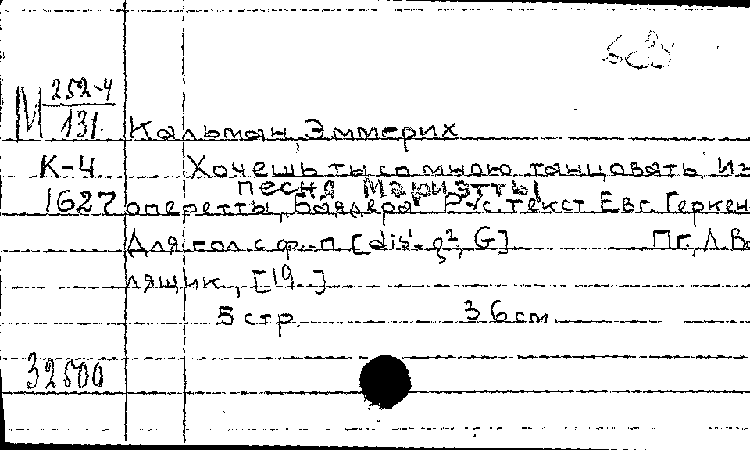 М 252-4
131
Кальман, Эммерих
К-4 Хочешь ты со мною танцовать. Из
песня Мариэтты
1627 оперетты "Баядера". Рус. текст Евг. Геркен
Для гол. с ф.-п. [dis¹-g², G] Пг., Л. Во
лящик, [19 ]
5 стр. 36 см
32500